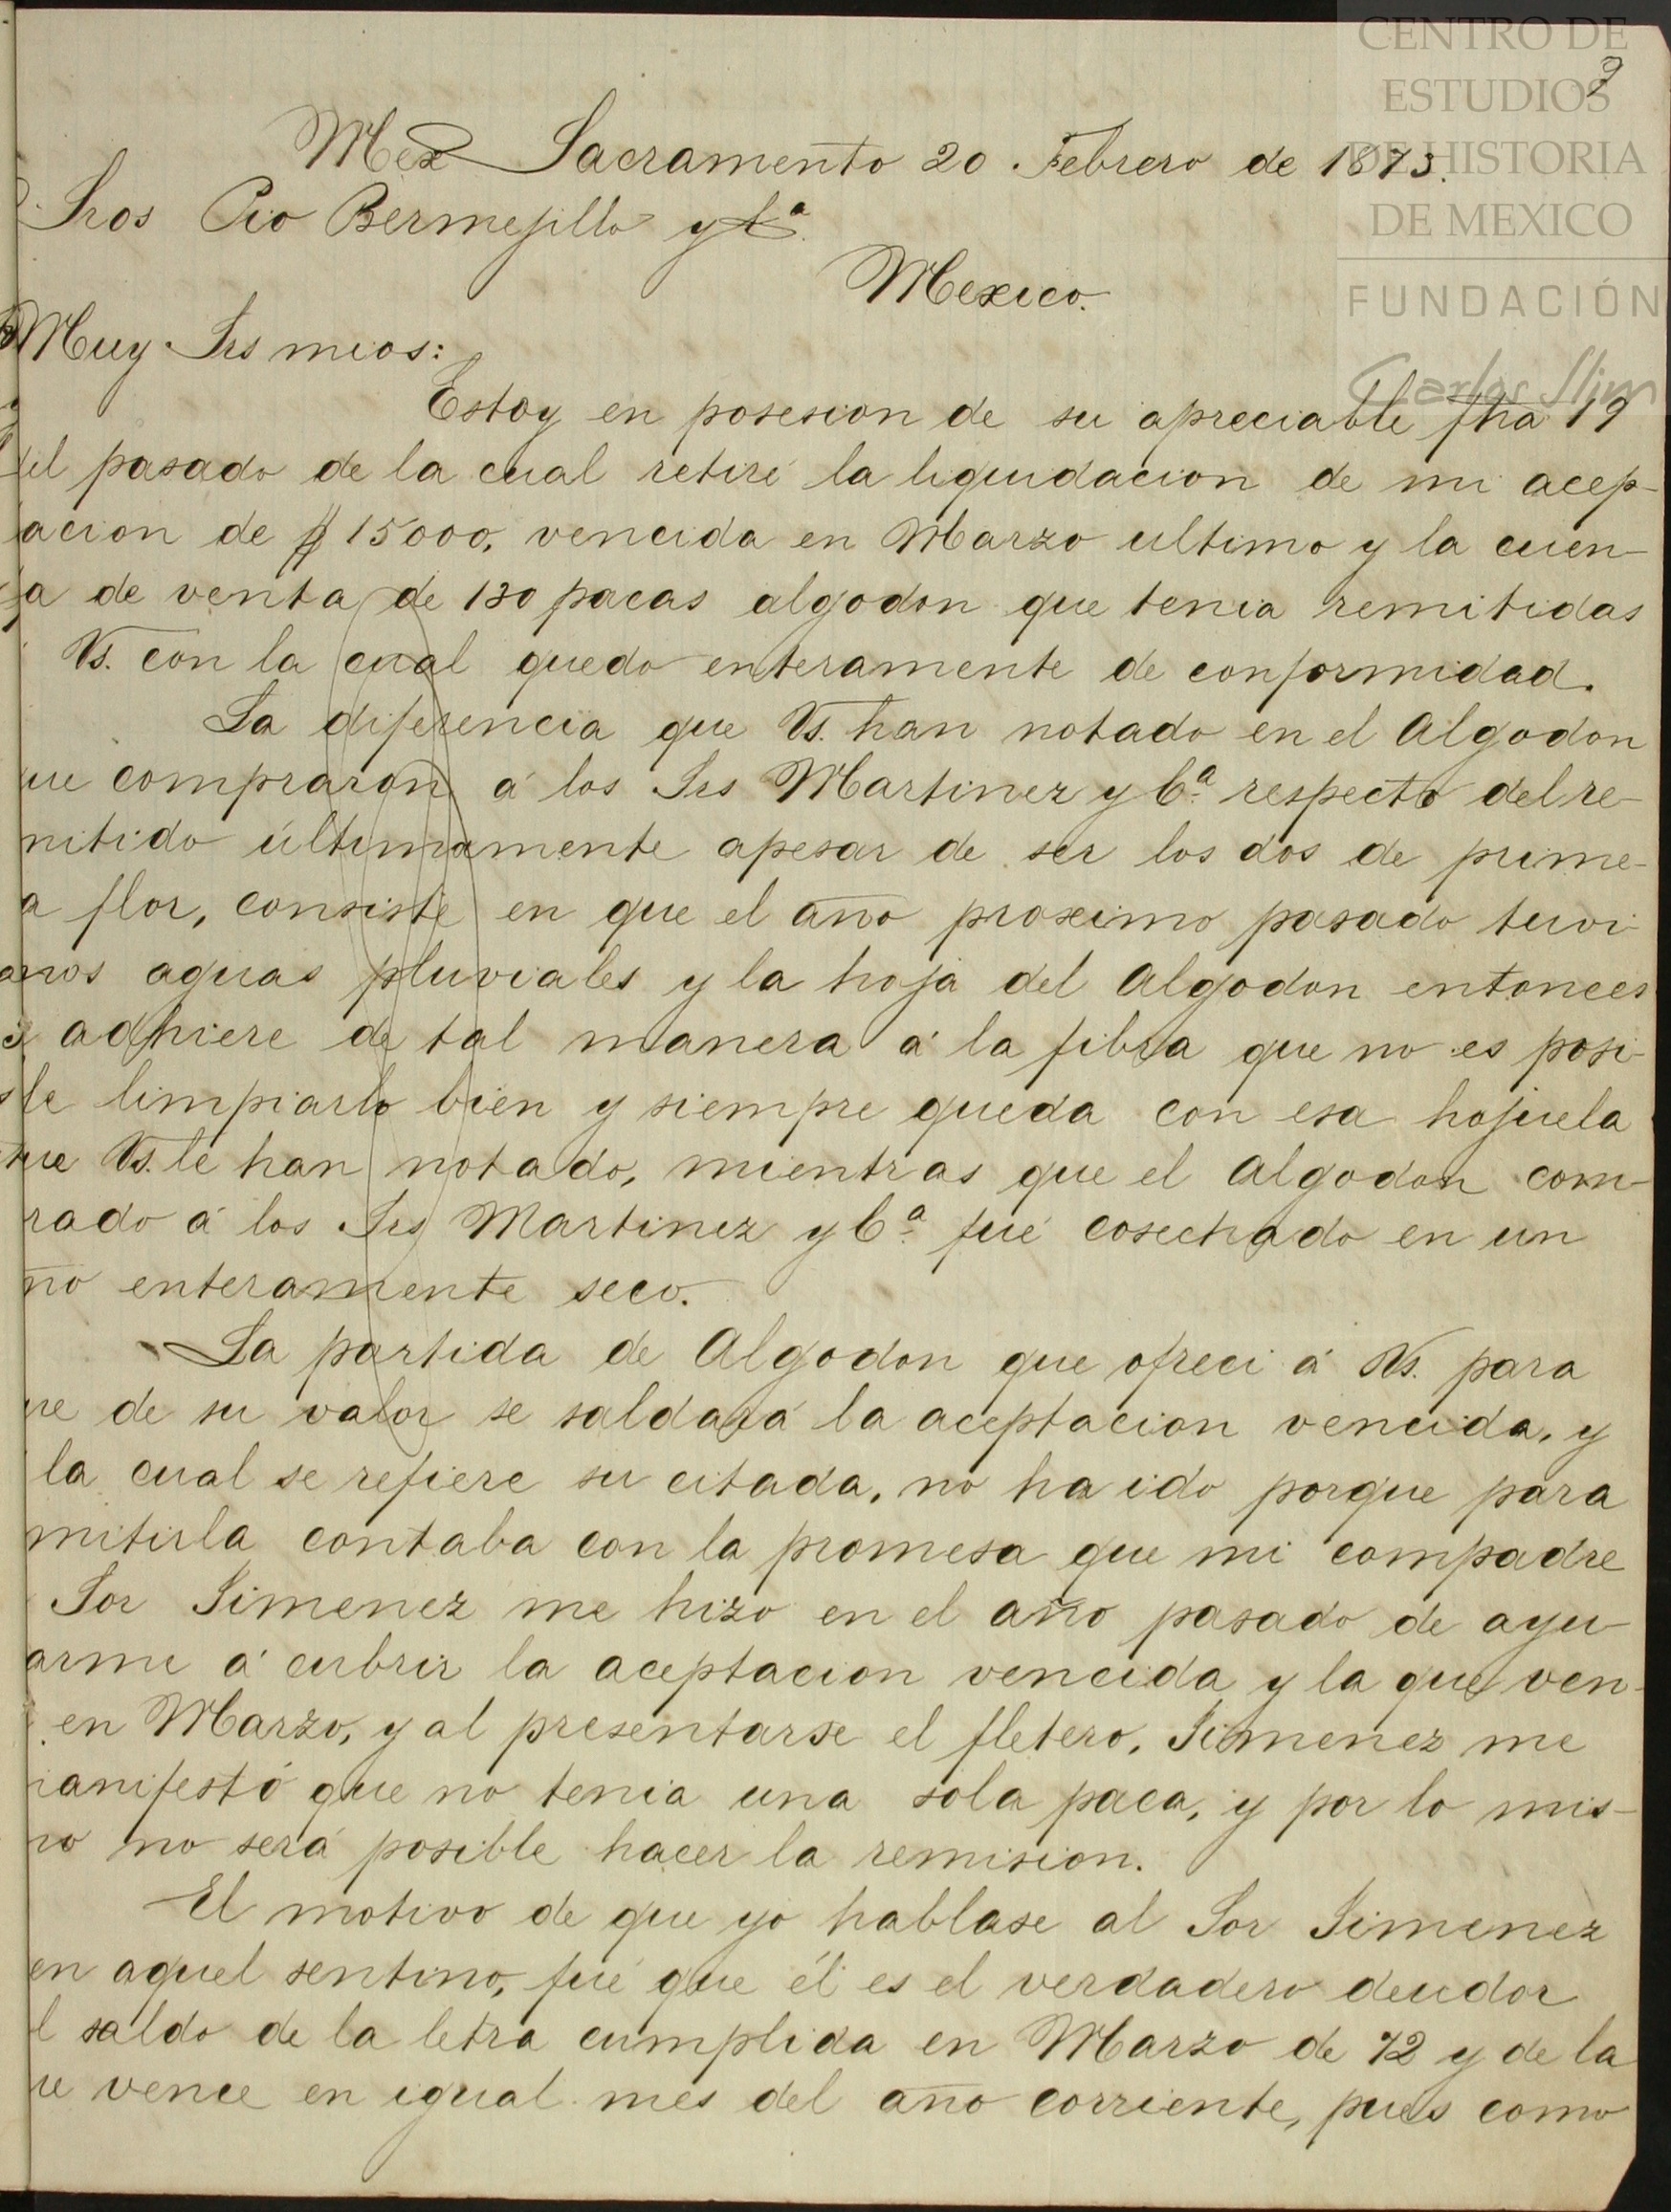 CENTRO DE
ESTUDIOS
DE HISTORIA
DE MEXICO
FUNDACIÓN
Carlos Slim
9
Mex Sacramento 20 Febrero de 1873.
Sros Pio Bermejillo y Cª.
Mexico.
Muy Srs mios:
Estoy en posesion de su apreciable fha 19
del pasado de la cual retiré la liquidacion de mi acep-
acion de $15000, vencida en Marzo ultimo y la cuen-
ta de venta de 130 pacas algodon que tenia remitidas
Vs. con la cual quedo enteramente de conformidad.
La diferencia que Vs. han notado en el Algodon
ue compraron á los Srs Martinez y Cª. respecto del re-
mitido últimamente apesar de ser los dos de prime-
a flor, consiste en que el año proximo pasado tuvi-
amos aguas pluviales y la hoja del Algodon entonces
se adhiere de tal manera á la fibra que no es posi-
ble limpiarlo bien y siempre queda con esa hojuela
que Vs. le han notado, mientras que el Algodon com-
rado á los Srs Martinez y Cª. fué cosechado en un
ño enteramente seco.
La partida de Algodon que ofreci á Vs. para
ue de su valor se saldará la aceptacion vencida, y
la cual se refiere su citada, no ha ido porque para
mitirla contaba con la promesa que mi compadre
Sor Jimenez me hizo en el año pasado de ayu-
arme á cubrir la aceptacion vencida y la que ven-
en Marzo, y al presentarse el fletero, Jimenez me
manifestó que no tenia una sola paca, y por lo mis-
mo no será posible hacer la remision.
El motivo de que yo hablase al Sor Jimenez
en aquel sentino, fué que él es el verdadero deudor
l saldo de la letra cumplida en Marzo de 72 y de la
ue vence en igual mes del año corriente, pues como